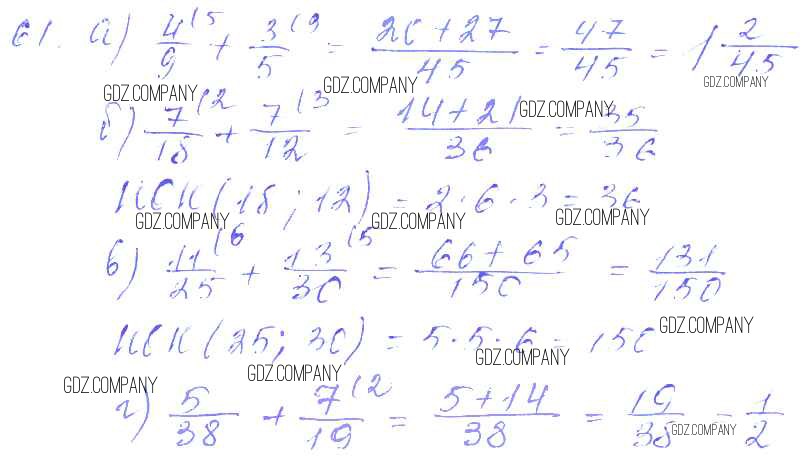 61. а) 4/9 (5 + 3/5 (9 = 20+27/45 = 47/45 = 1 2/45
GDZ.COMPANY GDZ.COMPANY GDZ.COMPANY
б) 7/18 (2 + 7/12 (3 = 14+21/36 = 35/36
GDZ.COMPANY
НОК (18; 12) = 2·6·3 = 36
GDZ.COMPANY GDZ.COMPANY GDZ.COMPANY
в) 11/25 (6 + 13/30 (5 = 66+65/150 = 131/150
НОК (25; 30) = 5·5·6 = 150
GDZ.COMPANY GDZ.COMPANY GDZ.COMPANY GDZ.COMPANY
г) 5/38 + 7/19 (2 = 5+14/38 = 19/38 = 1/2
GDZ.COMPANY